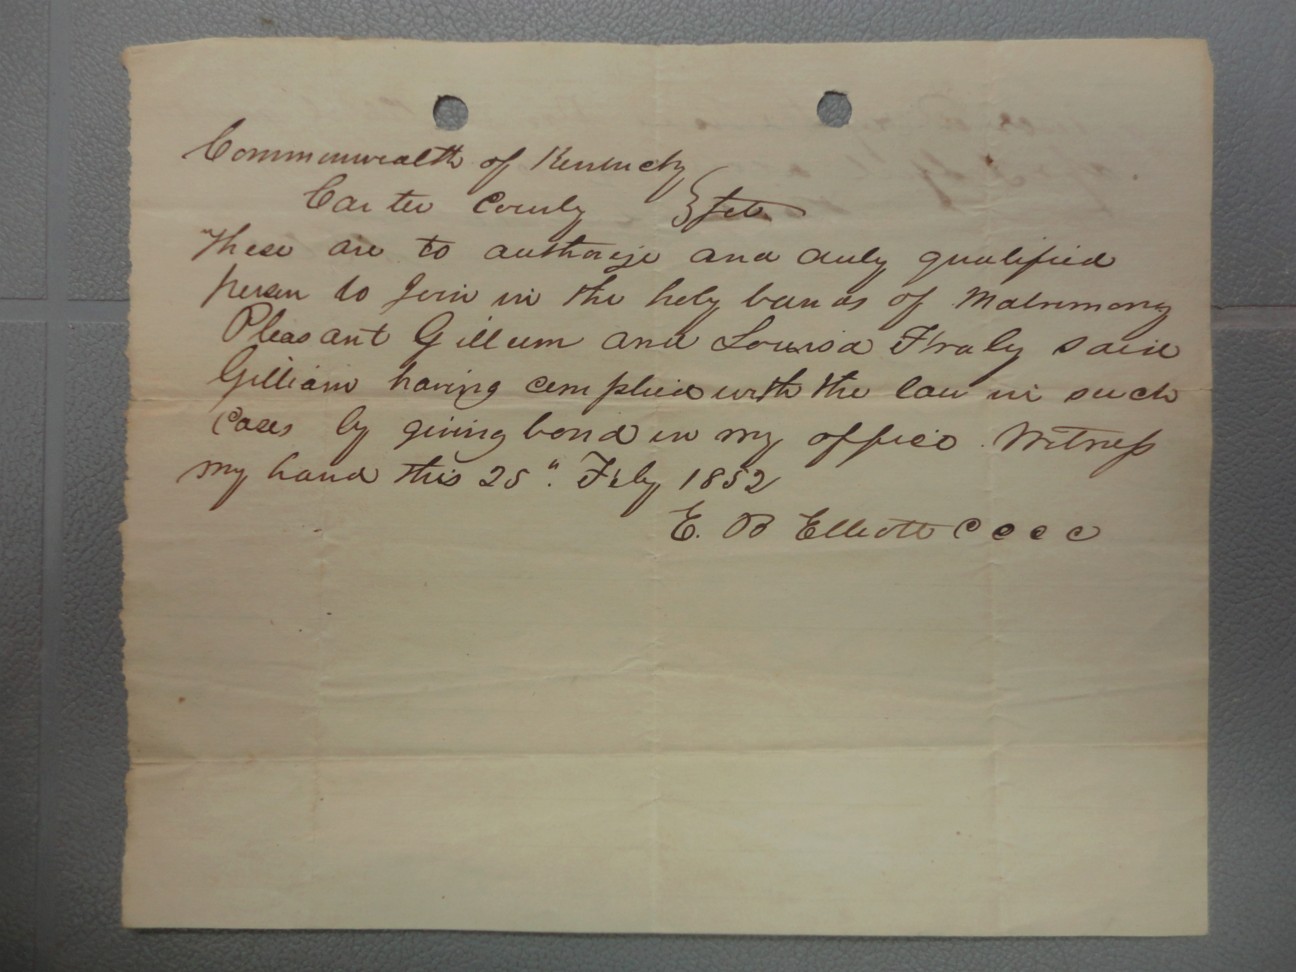 Commonwealth of Kentucky
Carter County } Sct
These are to authorize and duly qualified
person to Join in the holy bands of Matrimony
Pleasant Gillum and Louisa Fraly said
Gilliam having complied with the law in such
Cases by giving bond in my office. Witness
my hand this 25". Feby 1852
E. B Elliott C C C C